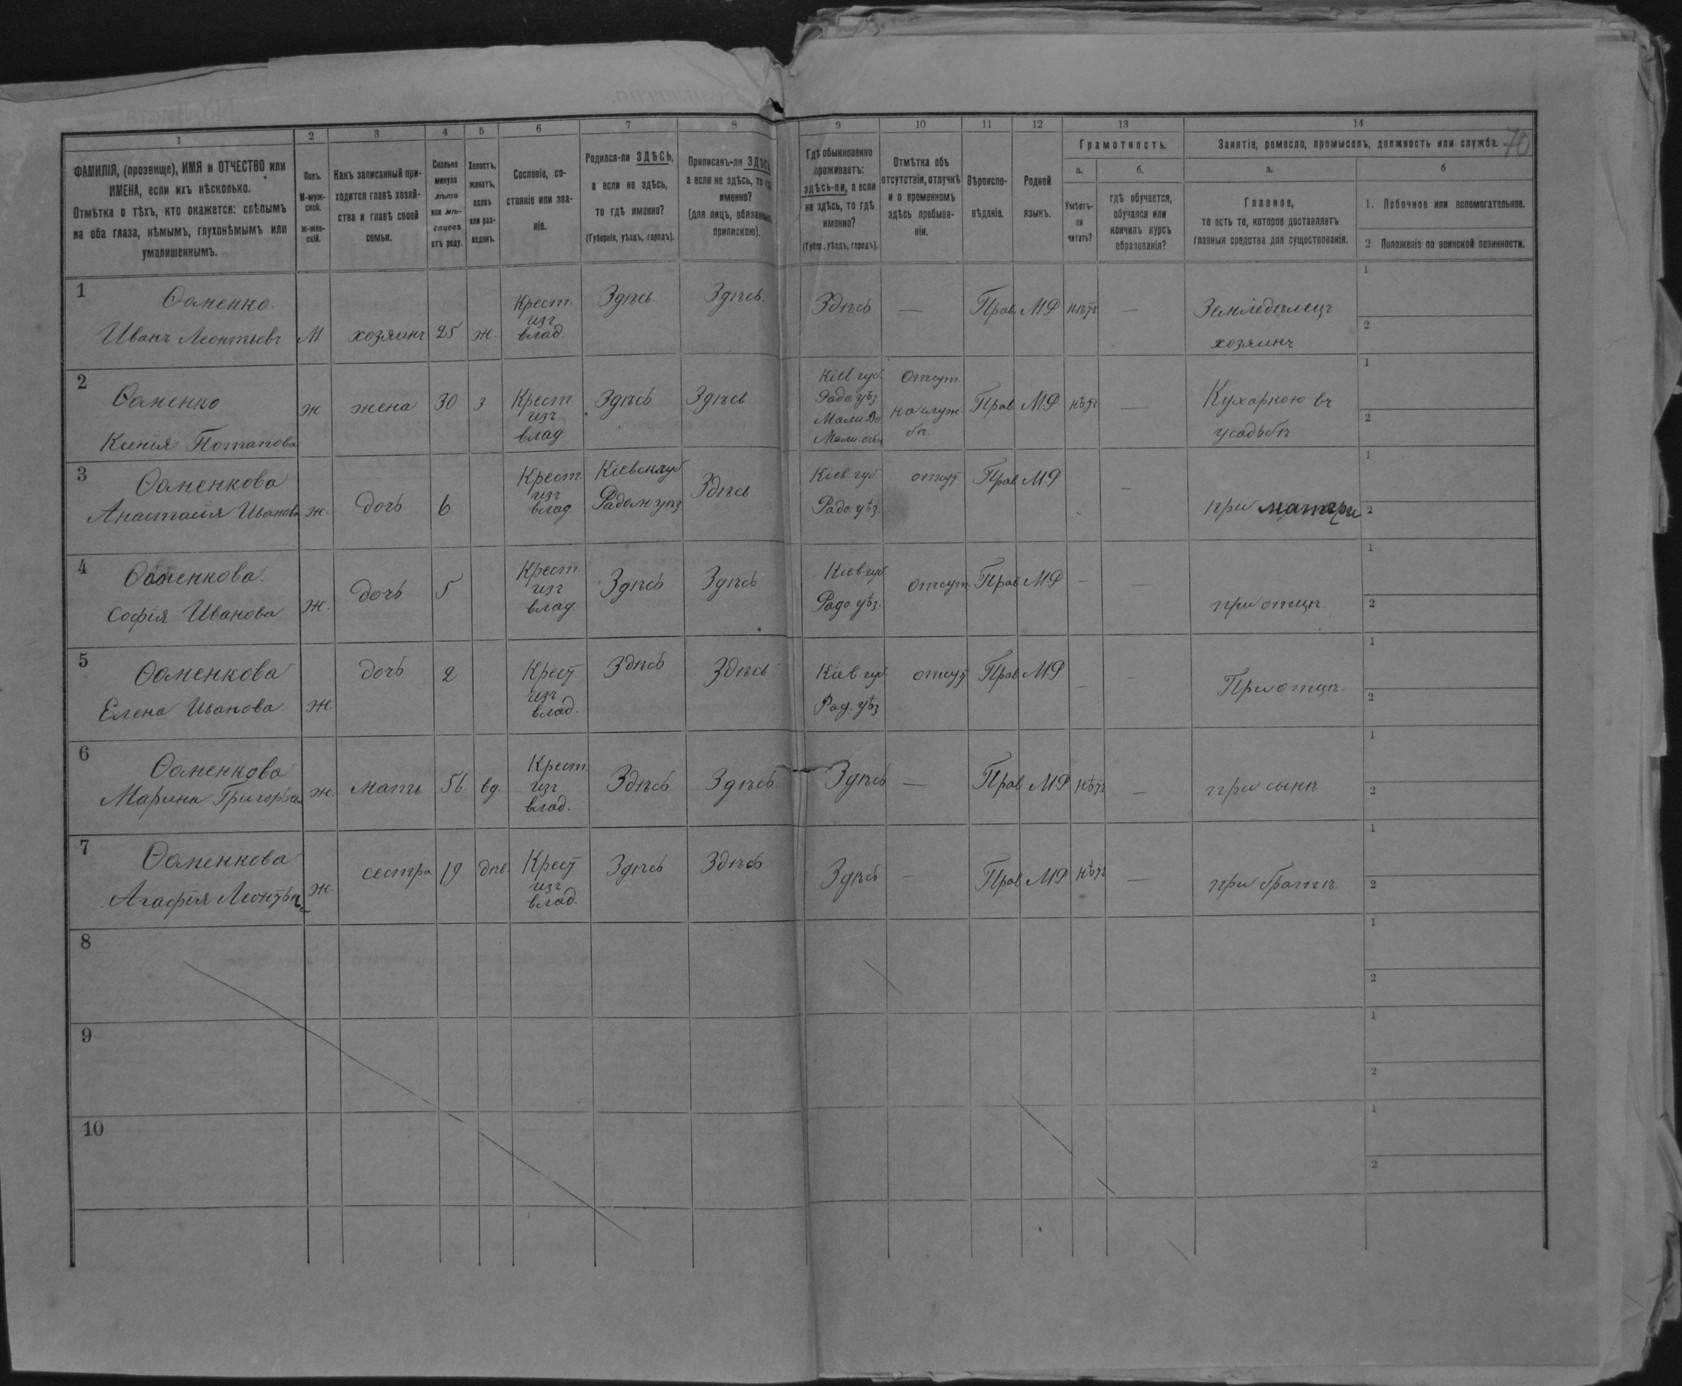 70
1 2 3 4 5 6 7 8 9 10 11 12 13 14
ФАМИЛІЯ, (прозвище), ИМЯ и ОТЧЕСТВО или
ИМЕНА, если ихъ нѣсколько.
Отмѣтка о тѣхъ, кто окажется: слѣпымъ
на оба глаза, нѣмымъ, глухонѣмымъ или
умалишеннымъ.
Полъ.
М-муж-
ской.
ж-жен-
скій.
Какъ записанный при-
ходится главѣ хозяй-
ства и главѣ своей
семьи.
Сколько
минуло
лѣтъ
или мѣ-
сяцевъ
отъ роду.
Холостъ,
женатъ,
вдовъ
или раз-
веденъ.
Сословіе, со-
стояніе или зва-
ніе.
Родился-ли ЗДѢСЬ,
а если не здѣсь,
то гдѣ именно?
(Губернія, уѣздъ, городъ).
Приписанъ-ли ЗДѢСЬ,
а если не здѣсь, то гдѣ
именно?
(для лицъ, обязанныхъ
припискою).
Гдѣ обыкновенно
проживаетъ:
здѣсь-ли, а если
не здѣсь, то гдѣ
именно?
(Губер., уѣздъ, городъ).
Отмѣтка объ
отсутствіи, отлучкѣ
и о временномъ
здѣсь пребыва-
ніи.
Вѣроиспо-
вѣданіе.
Родной
языкъ.
Грамотность.
а.
Умѣетъ-
ли
читать?
б.
гдѣ обучается,
обучался или
кончилъ курсъ
образованія?
Занятіе, ремесло, промыселъ, должность или служба.
а.
Главное,
то есть то, которое доставляетъ
главныя средства для существованія.
б
1. Побочное или вспомогательное.
2 Положеніе по воинской повинности.
1
Ѳоменко
Иванъ Леонтьевъ
М
хозяинъ
25
ж.
Крест.
изъ
влад
Здѣсь
Здѣсь
Здѣсь
—
Прав
МР
нѣтъ
—
Земледѣлецъ
хозяинъ
1
2
2
Ѳоменко
Ксенія Потапова
ж
жена
30
з
Крест
изъ
влад
Здѣсь
Здѣсь
Кіев губ
Радо уѣз
Мали
Отсут.
на служ
бѣ
Прав
МР
нѣтъ
—
Кухаркою въ
усадьбѣ
1
2
3
Ѳоменкова
Анастасія Иванова
ж.
дочь
6
Крест
изъ
влад
Кіевск губ
Радом уѣз
Здѣсь
Кіев. губ
Радо. уѣз
отсут
Прав
МР
—
при матери
1
2
4
Ѳоменкова
Софія Иванова
ж.
дочь
5
Крест
изъ
влад
Здѣсь
Здѣсь
Кіев губ
Радо уѣз.
отсут.
Прав
МР
—
—
при отцѣ
1
2
5
Ѳоменкова
Елена Иванова
ж
дочь
2
Крест
изъ
влад.
Здѣсь
Здѣсь
Кіев губ
Рад. уѣз
отсут
Прав
МР
—
—
При отцѣ
1
2
6
Ѳоменкова
Марина Григорьева
ж.
мать
56
вд
Крест
изъ
влад.
Здѣсь
Здѣсь
Здѣсь
—
Прав
МР
нѣтъ
—
при сынѣ
1
2
7
Ѳоменкова
Агафія Леонтьева
ж.
сестра
19
дѣв
Крест
изъ
влад.
Здѣсь
Здѣсь
Здѣсь
—
Прав
МР
нѣтъ
—
при братѣ
1
2
8
1
2
9
1
2
10
1
2